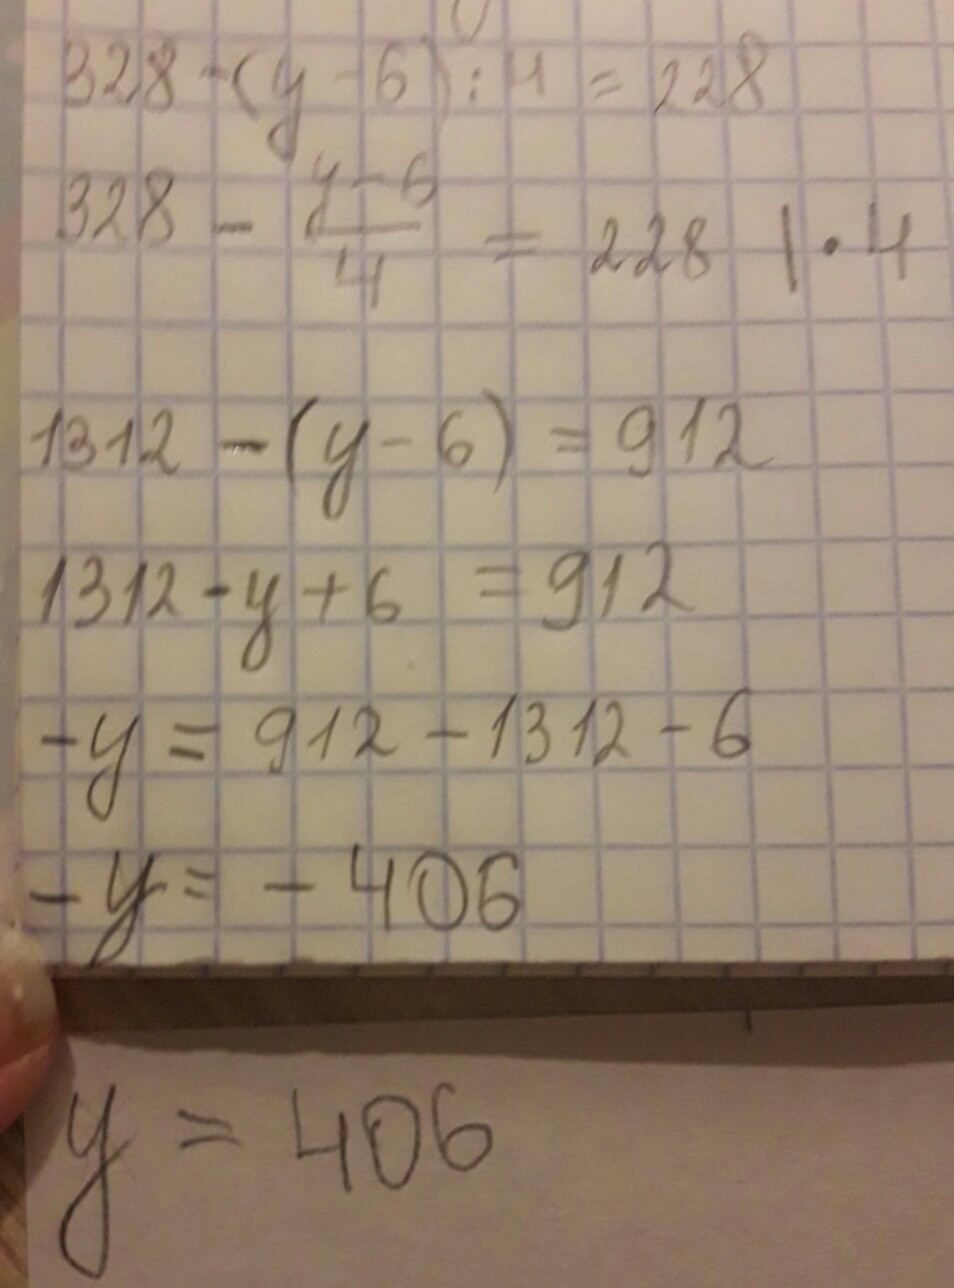 328-(y-6):4=228
328 - \frac{y-6}{4} = 228 | · 4
1312 - (y-6) = 912
1312 - y + 6 = 912
-y = 912 - 1312 - 6
-y = - 406
y = 406